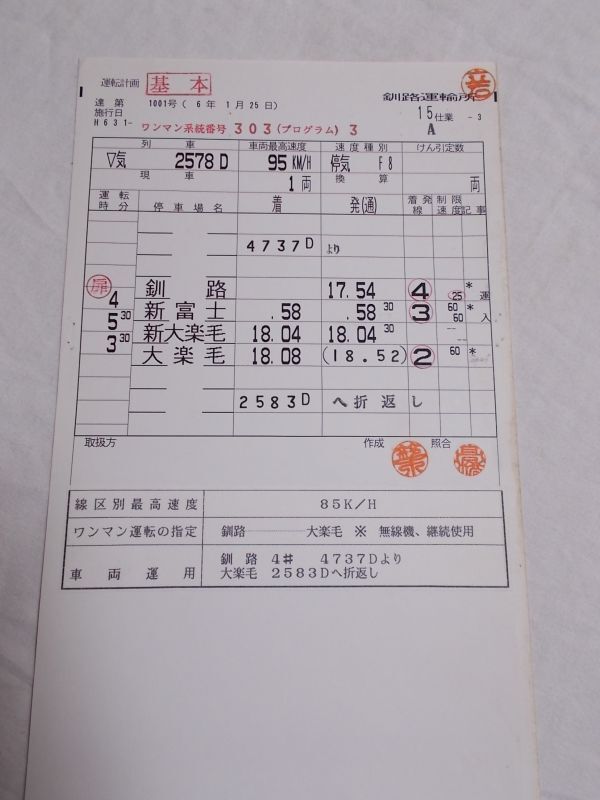 運転計画 基本
達 第 1001号( 6 年 1 月 25 日) 釧路運輸所
施行日 H 6 3 1 - 15 仕業 - 3
ワンマン系統番号 303 (プログラム) 3 A
列 車 車両最高速度 速度種別 けん引定数
▽気 2578D 95 KM/H 停気 F8
現 車 1 両 換 算 両
運転時分 停車場名 着 発(通) 着発線 制限速度 記事
4737D より
扉 釧 路 17.54 4 25 * 運
4 新富士 .58 .58 30 3 60 60 * 入
5 30 新大楽毛 18.04 18.04 30
3 30 大楽毛 18.08 (18.52) 2 60 *
2583D へ折返し
取扱方 作成 照合
線区別最高速度 85K/H
ワンマン運転の指定 釧路────大楽毛 ※ 無線機、継続使用
車両運用 釧 路 4# 4737Dより
大楽毛 2583Dへ折返し